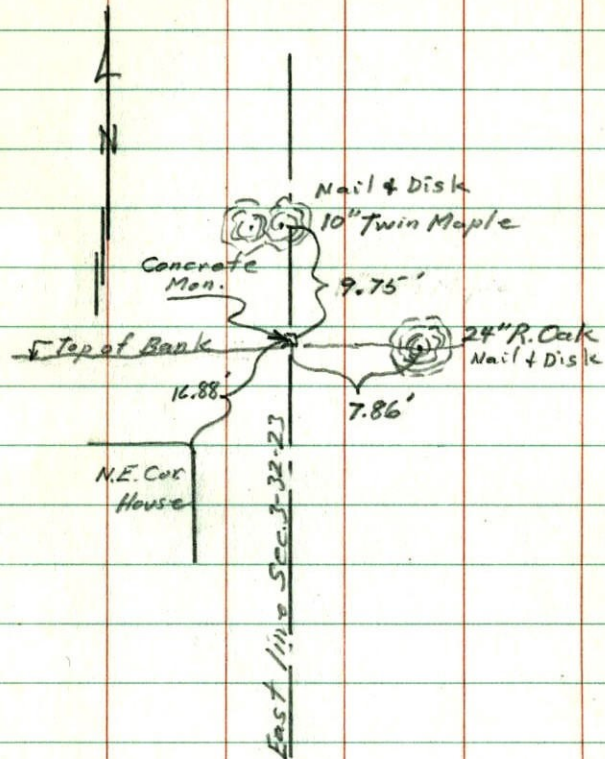 N
Nail & Disk
10" Twin Maple
Concrete
Mon.
9.75'
Top of Bank
24" R. Oak
Nail & Disk
16.88'
7.86'
N.E. Cor
House
East line Sec. 3-32-23